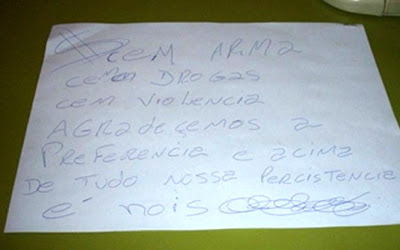 cem ARMA
cemm DROGAS
cem violencia
AGRADEÇEMOS a
PREFERENCIA e acima
DE TUDO NOSSA PERCISTENCIA
é nois